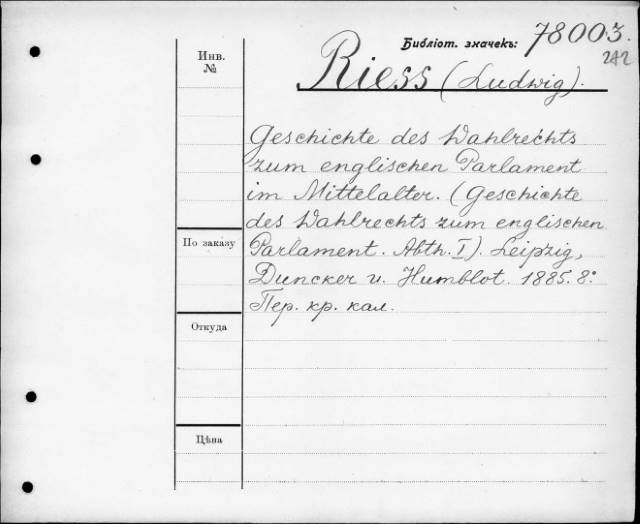 Библіот. значекъ: 78003.
242
Инв.
№
Riess (Ludwig).
Geschichte des Wahlrechts
zum englischen Parlament
im Mittelalter. (Geschichte
des Wahlrechts zum englischen
По заказу
Parlament. Abth. I). Leipzig,
Duncker u. Humblot. 1885. 8º
Пер. кр. кал.
Откуда
Цѣна